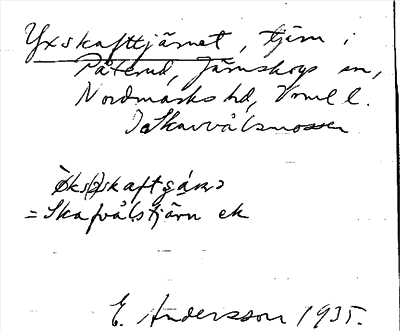 Yxskafttjärnet, tjärn i
Påterud, Järnskogs sn,
Nordmarks hd, Vrml l.
I Skarvålsmossen
= Skafvålstjärn ek
E. Andersson 1935.